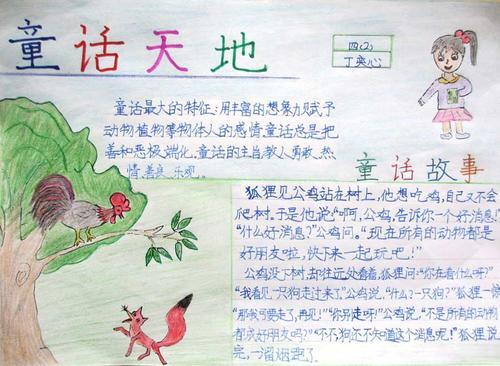 童话天地
四(2)
丁奕心
童话最大的特征:用丰富的想象力赋予
动物植物等物体人的感情童话总是把
善和恶极端化,童话的主旨教人勇敢、热
情、善良、乐观。
童话故事
狐狸见公鸡站在树上,他想吃鸡,自己又不会
爬树。于是他说:“啊,公鸡,告诉你一个好消息”
“什么好消息?”公鸡问。“现在所有的动物都是
好朋友啦,快下来一起玩吧!”
公鸡没下树,却往远处看着,狐狸问:“你在看什么呀?”
“我看见一只狗走过来了”公鸡说,“什么?一只狗?”狐狸一惊
“那我可要走了,再见!”“你别走呀!”公鸡说,“不是所有的动物
都成好朋友吗?”“不,不,狗还不知道这个消息呢!”狐狸说
完,一溜烟跑了.